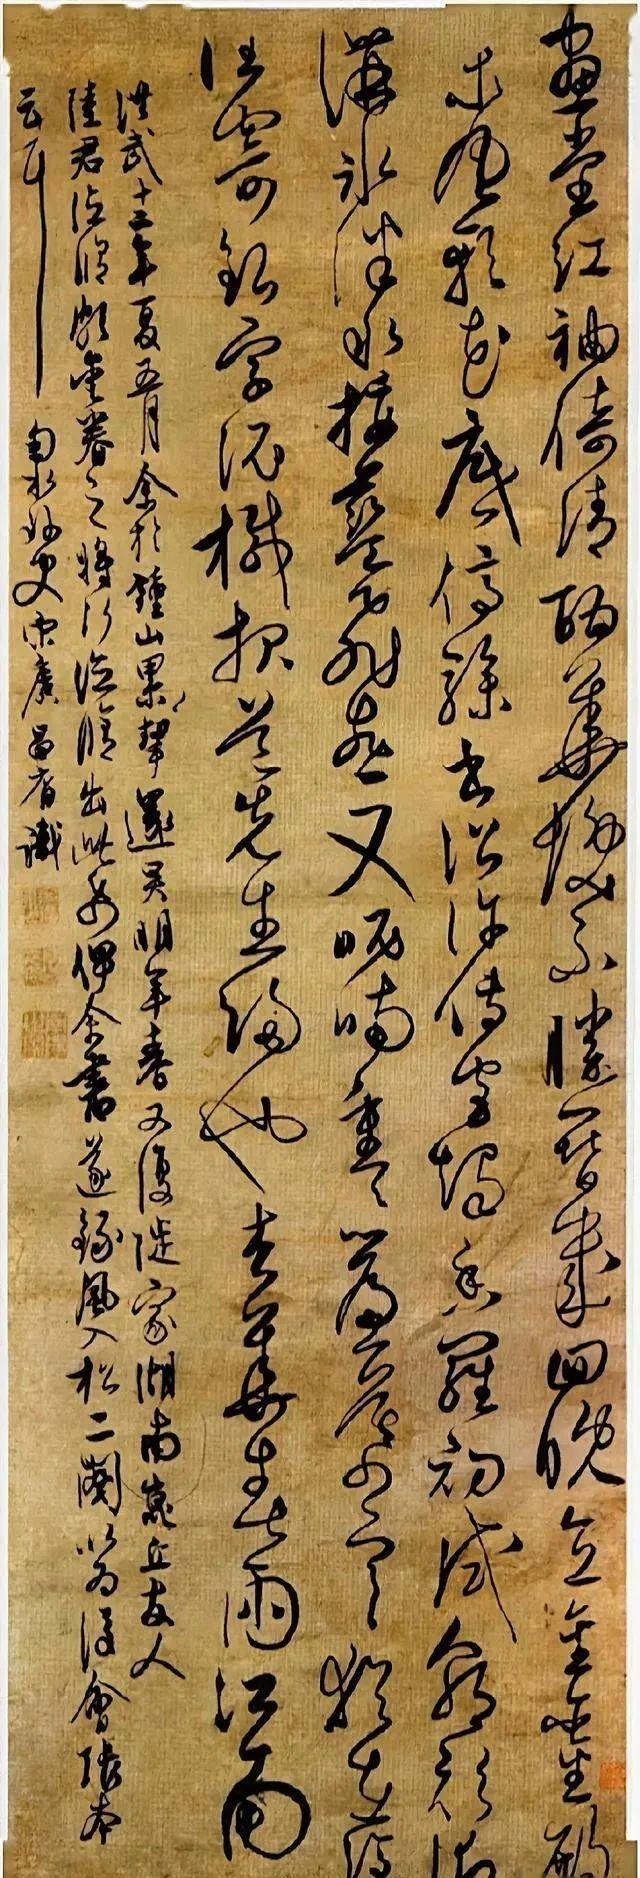 畫堂紅袖倚清酣華髮不勝簪幾回晚直金鑾殿
東風軟花底停驂書詔許傳宮燭香羅初試朝衫御
溝冰泮水挼藍飛燕又呢喃重重簾幕寒猶在憑
誰寄銀字泥緘報道先生歸也杏花春雨江南
洪武十二年夏五月余於鍾山累挈還吳明年春又復徙家湖南嵩丘友人
陸君德脩之將行德脩出此帋俾余書遂錄風入松二闋以為後會張本
云耳 東海外史宋廣昌裔識